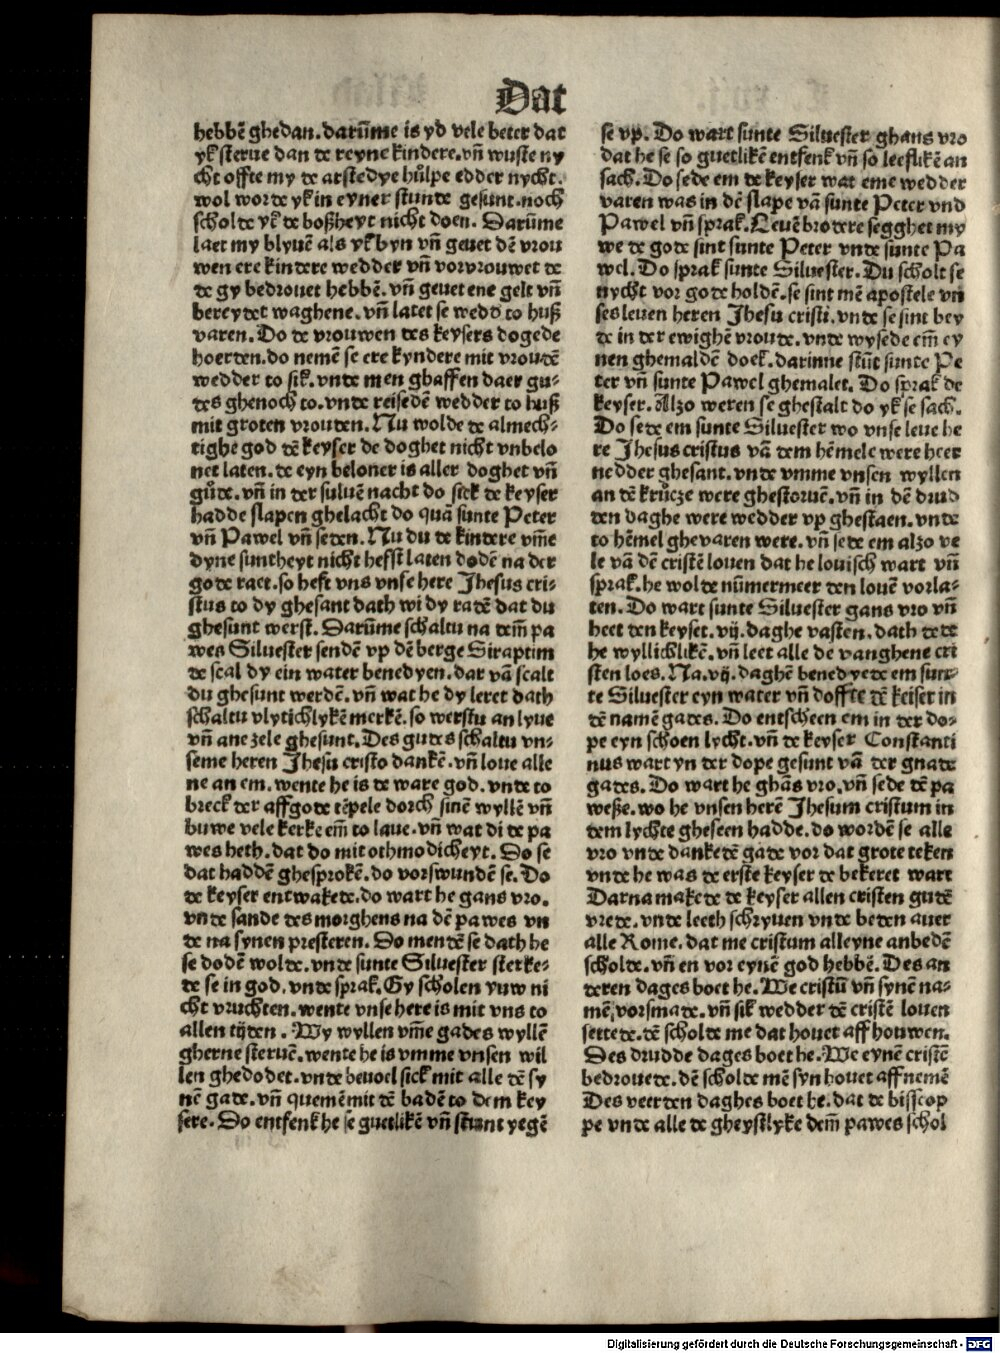 Dat
hebbē ghedan. darūme is yd vele beter dat
yk sterue dan de reyne kindere. vn̄ wuste ny
cht offte my de arstedye hůlpe edder nycht.
wol worde yk in eyner stunde gesunt. noch
scholde yk de boßheyt nicht doen. Darūme
laet my blyuē als yk byn vn̄ geuet dē vrou
wen ere kindere wedder vn̄ vorvrouwet de
de gy bedrouet hebbē. vn̄ geuet ene gelt vn̄
bereydet waghene. vn̄ latet se wedd̄ to huß
varen. Do de vrouwen des keysers dogede
hoerden. do nemē se ere kyndere mit vroudē
wedder to sik. vnde men ghaffen daer gu-
des ghenoch to. vnde reisedē wedder to huß
mit groten vrouden. Nu wolde de almech-
tighe god dē keyser de doghet nicht vnbelo
net laten. de eyn beloner is aller doghet vn̄
gůde. vn̄ in der suluē nacht do sick de keyser
hadde slapen ghelacht do quā sunte Peter
vn̄ Pawel vn̄ seden. Nu du de kindere vm̄e
dyne suntheyt nicht hefst laten dodē na der
gode raet. so heft vns vnse here Jhesus cri-
stus to dy ghesant dath wi dy radē dat du
ghesunt werst. Darūme schaltu na dem̄ pa
wes Siluester sendē vp dē berge Siraptim
de scal dy ein water benedyen. dar vā scalt
du ghesunt werdē. vn̄ wat he dy leret dath
schaltu vlytichlykē merkē. so werstu an lyue
vn̄ ane zele ghesunt. Des gudes schaltu vn-
seme heren Jhesu cristo dankē. vn̄ loue alle
ne an em. wente he is de ware god. vnde to
breck der affgode tēpele dorch sinē wyllē vn̄
buwe vele kerke em̄ to laue. vn̄ wat di de pa
wes heth. dat do mit othmodicheyt. Do se
dat haddē ghesprokē. do vorswundē se. Do
de keyser entwakede. do wart he gans vro.
vnde sande des morghens na dē pawes vn
de na synen presteren. Do mendē se dath he
se dodē wolde. vnde sunte Siluester sterke-
de se in god. vnde sprak. Gy scholen yuw ni
cht vruchten. wente vnse here is mit vns to
allen tijden. Wy wyllen vm̄e gades wyllē
gherne steruē. wente he is vmme vnsen wil
len ghedodet. vnde beuoel sick mit alle dē sy
nē gade. vn̄ quemē mit dē badē to dem key
sere. Do entfenk he se guetlikē vn̄ stunt yegē
se vp. Do wart sunte Siluester ghans vro
dat he se so guetlikē entfenk vn̄ so leeflikē an
sach. Do sede em de keyser wat eme wedder
varen was in dē slape vā sunte Peter vnd
Pawel vn̄ sprak. Leuē brodere segghet my
we de gode sint sunte Peter vnde sunte Pa
wel. Do sprak sunte Siluester. Du scholt se
nycht vor gode holdē. se sint mē apostele vn
ses leuen heren Jhesu cristi. vnde se sint bey
de in der ewighē vroude. vnde wysede em̄ ey
nen ghemaldē doek. darinne stūt sunte Pe
ter vn̄ sunte Pawel ghemalet. Do sprak de
keyser. Alzo weren se ghestalt do yk se sach.
Do sede em sunte Siluester wo vnse leue he
re Jhesus cristus vā dem hēmele were heer
nedder ghesant. vnde vmme vnsen wyllen
an dē krůcze were ghestoruē. vn̄ in dē drud
den daghe were wedder vp ghestaen. vnde
to hēmel ghevaren were. vn̄ sede em alzo ve
le vā dē cristē louen dat he louisch wart vn̄
sprak. he wolde nūmermeer den louē vorla-
ten. Do wart sunte Siluester gans vro vn̄
heet den keyser. vij. daghe vasten. dath dede
he wyllichlikē. vn̄ leet alle de vanghene cri
sten loes. Na. vij. daghē benedyede em sun-
te Siluester eyn water vn̄ doffte dē keiser in
dē namē gades. Do entscheen em in der do-
pe eyn schoen lycht. vn̄ de keyser Constanti
nus wart yn der dope gesunt vā der gnade
gades. Do wart he ghās vro. vn̄ sede dē pa
weße. wo he vnsen herē Jhesum cristum in
dem lychte gheseen hadde. do wordē se alle
vro vnde dankedē gade vor dat grote teken
vnde he was de erste keyser de bekeret wart
Darna makede de keyser allen cristen gudē
vrede. vnde leeth schryuen vnde beden auer
alle Rome. dat me cristum alleyne anbedē
scholde. vn̄ en vor eynē god hebbē. Des an
deren dages boet he. We cristū vn̄ synē na-
mē. vorsmade. vn̄ sik wedder dē cristē louen
settede. dē scholde me dat houet aff houwen.
Des drudde dages boet he. We eynē cristē
bedrouede. dē scholde mē syn houet aff nemē
Des veerden daghes boet he. dat de bisscop
pe vnde alle de gheystlyke dem̄ pawes schol
Digitalisierung gefördert durch die Deutsche Forschungsgemeinschaft - DFG